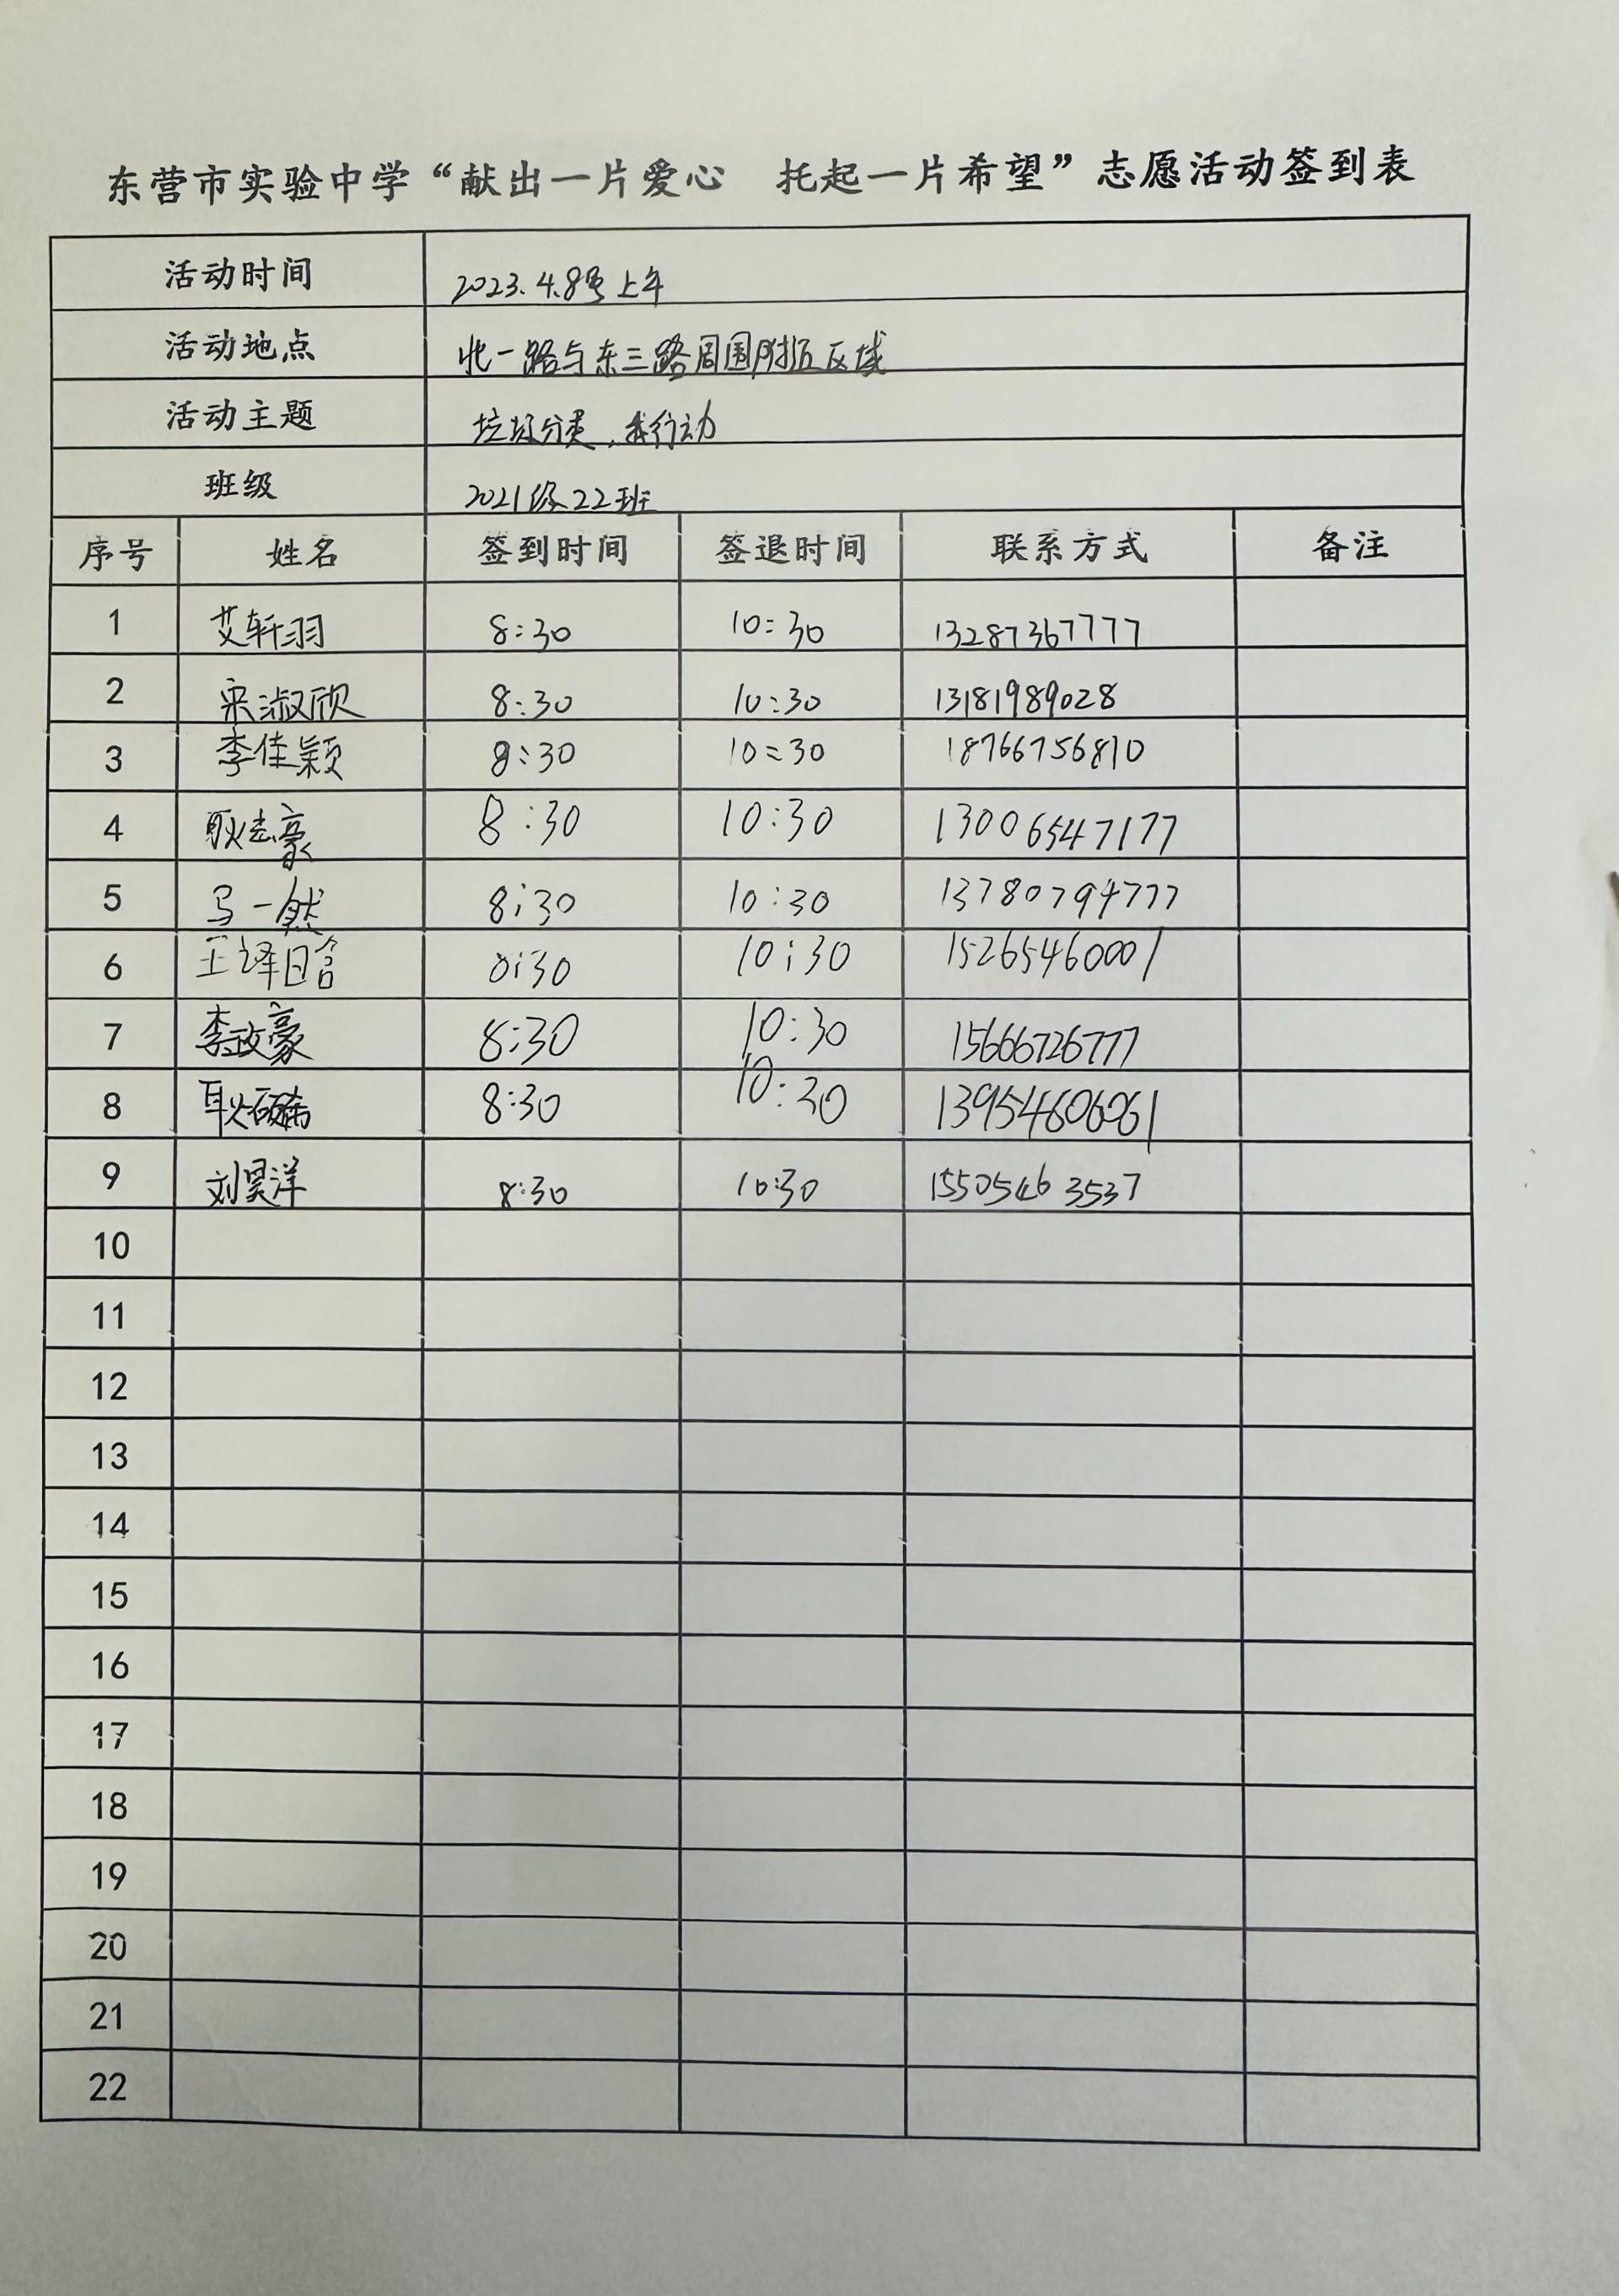 东营市实验中学“献出一片爱心 托起一片希望”志愿活动签到表
活动时间 2023.4.8号上午
活动地点 北一路与东三路周围附近区域
活动主题 垃圾分类，我行动
班级 2021级22班
序号 姓名 签到时间 签退时间 联系方式 备注
1 艾轩羽 8:30 10:30 13287367777
2 宋淑欣 8:30 10:30 13181989028
3 李佳颖 8:30 10:30 18766756810
4 耿志豪 8:30 10:30 13006547177
5 马一然 8:30 10:30 13780794777
6 王译晗 8:30 10:30 15265460001
7 李政豪 8:30 10:30 15666726777
8 耿硕 8:30 10:30 13954606061
9 刘昊洋 8:30 10:30 15505463537
10
11
12
13
14
15
16
17
18
19
20
21
22